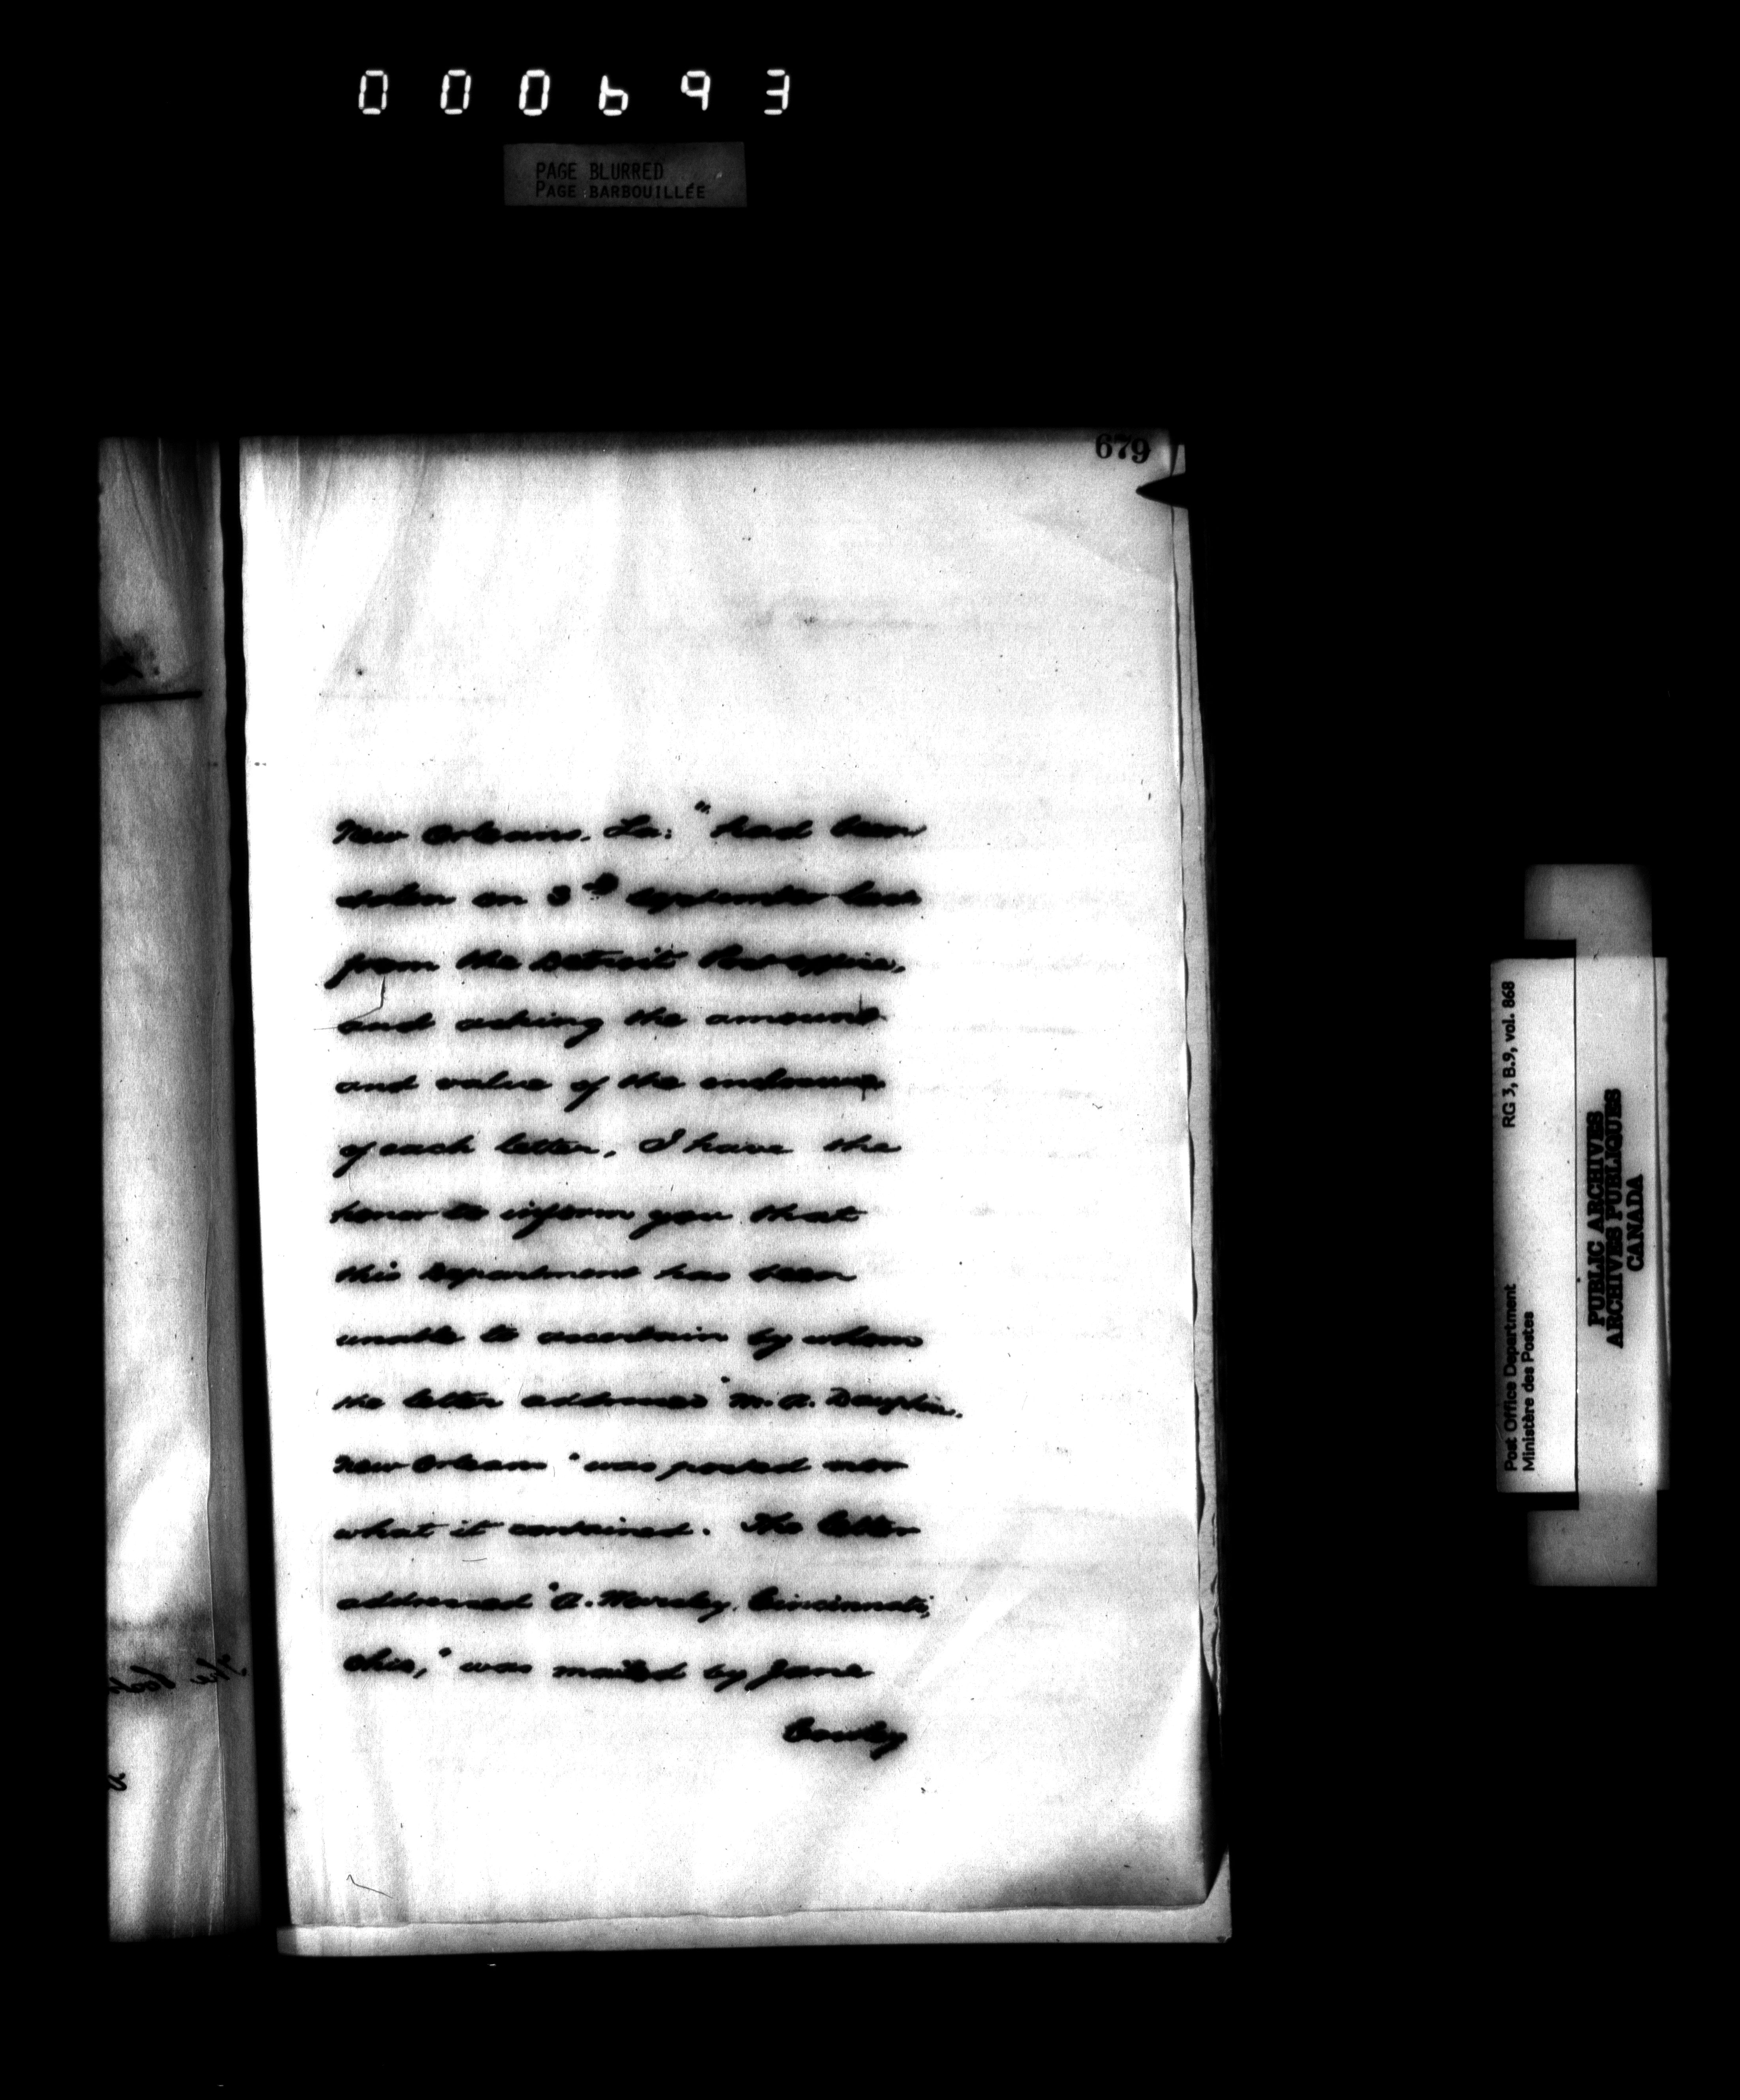 000693
PAGE BLURRED
PAGE BARBOUILLÉE
679
New Orleans, La: " had been
stolen on 3rd September last
from the Detroit Post office,
and asking the amount
and value of the enclosure
of each letter, I have the
honor to inform you that
this Department has been
unable to ascertain by whom
the letter addressed "M. A. Dauphin,
New Orleans" was posted nor
what it contained. The letter
addressed "A. Mursley, Cincinnati,
Ohio," was mailed by Jane
RG 3, B.9, vol. 868
Post Office Department
Ministère des Postes
PUBLIC ARCHIVES
ARCHIVES PUBLIQUES
CANADA